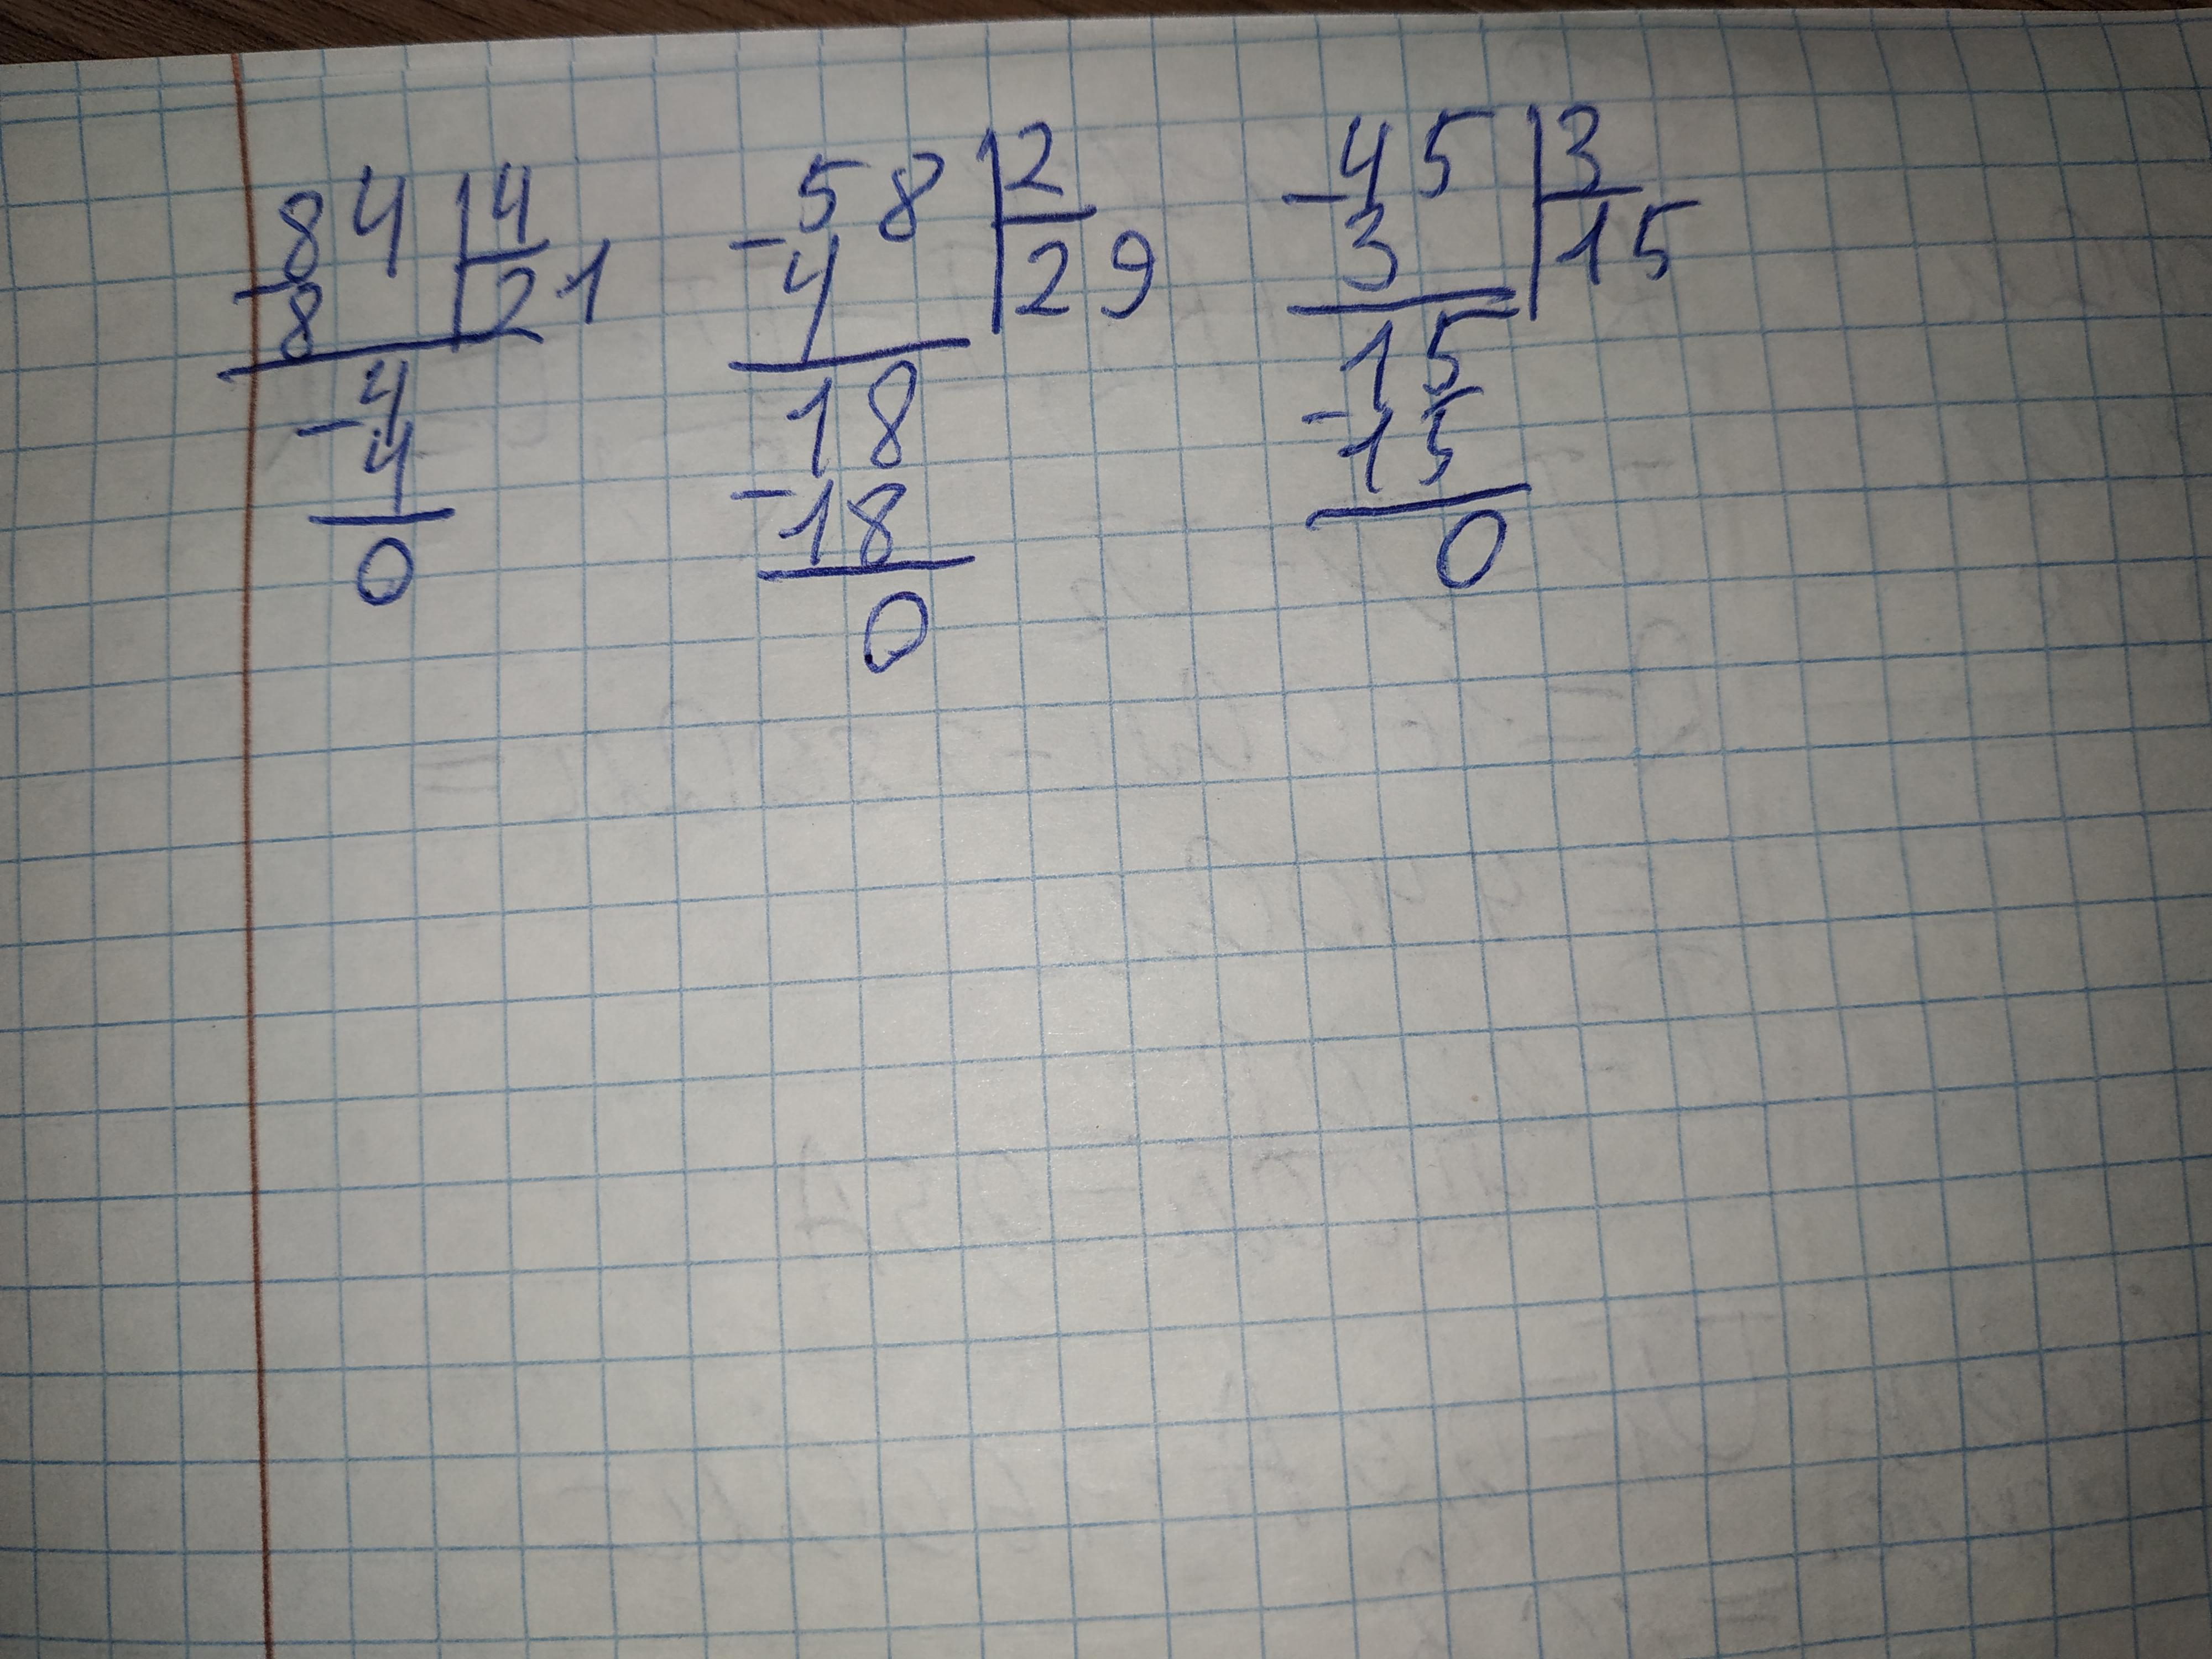 84 | 4
- 8 | 21
- 4
4
0
58 | 2
- 4 | 29
18
- 18
0
- 45 | 3
3 | 15
15
- 15
0